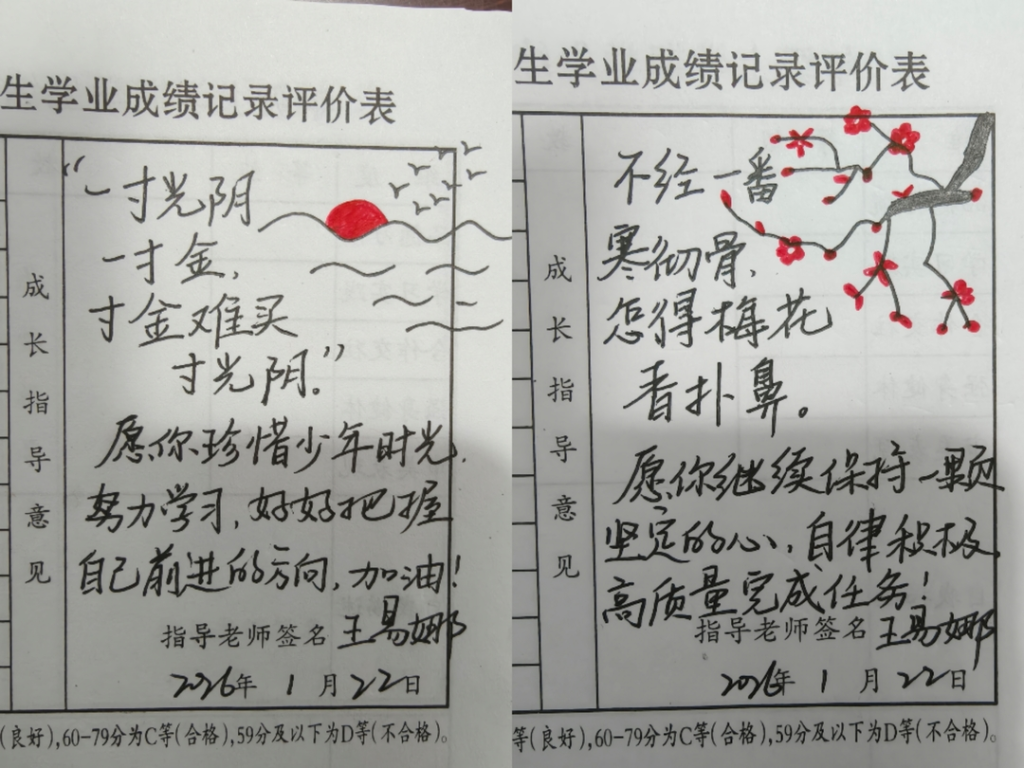 生学业成绩记录评价表
成长指导意见
“一寸光阴
一寸金,
寸金难买
寸光阴.”
愿你珍惜少年时光,
努力学习,好好把握
自己前进的方向,加油!
指导老师签名 王易娜
2026年 1 月 22 日
(良好),60-79分为C等(合格),59分及以下为D等(不合格)。
生学业成绩记录评价表
成长指导意见
不经一番
寒彻骨,
怎得梅花
香扑鼻。
愿你继续保持一颗
坚定的心,自律积极,
高质量完成任务!
指导老师签名 王易娜
2026年 1 月 22 日
等(良好),60-79分为C等(合格),59分及以下为D等(不合格)。